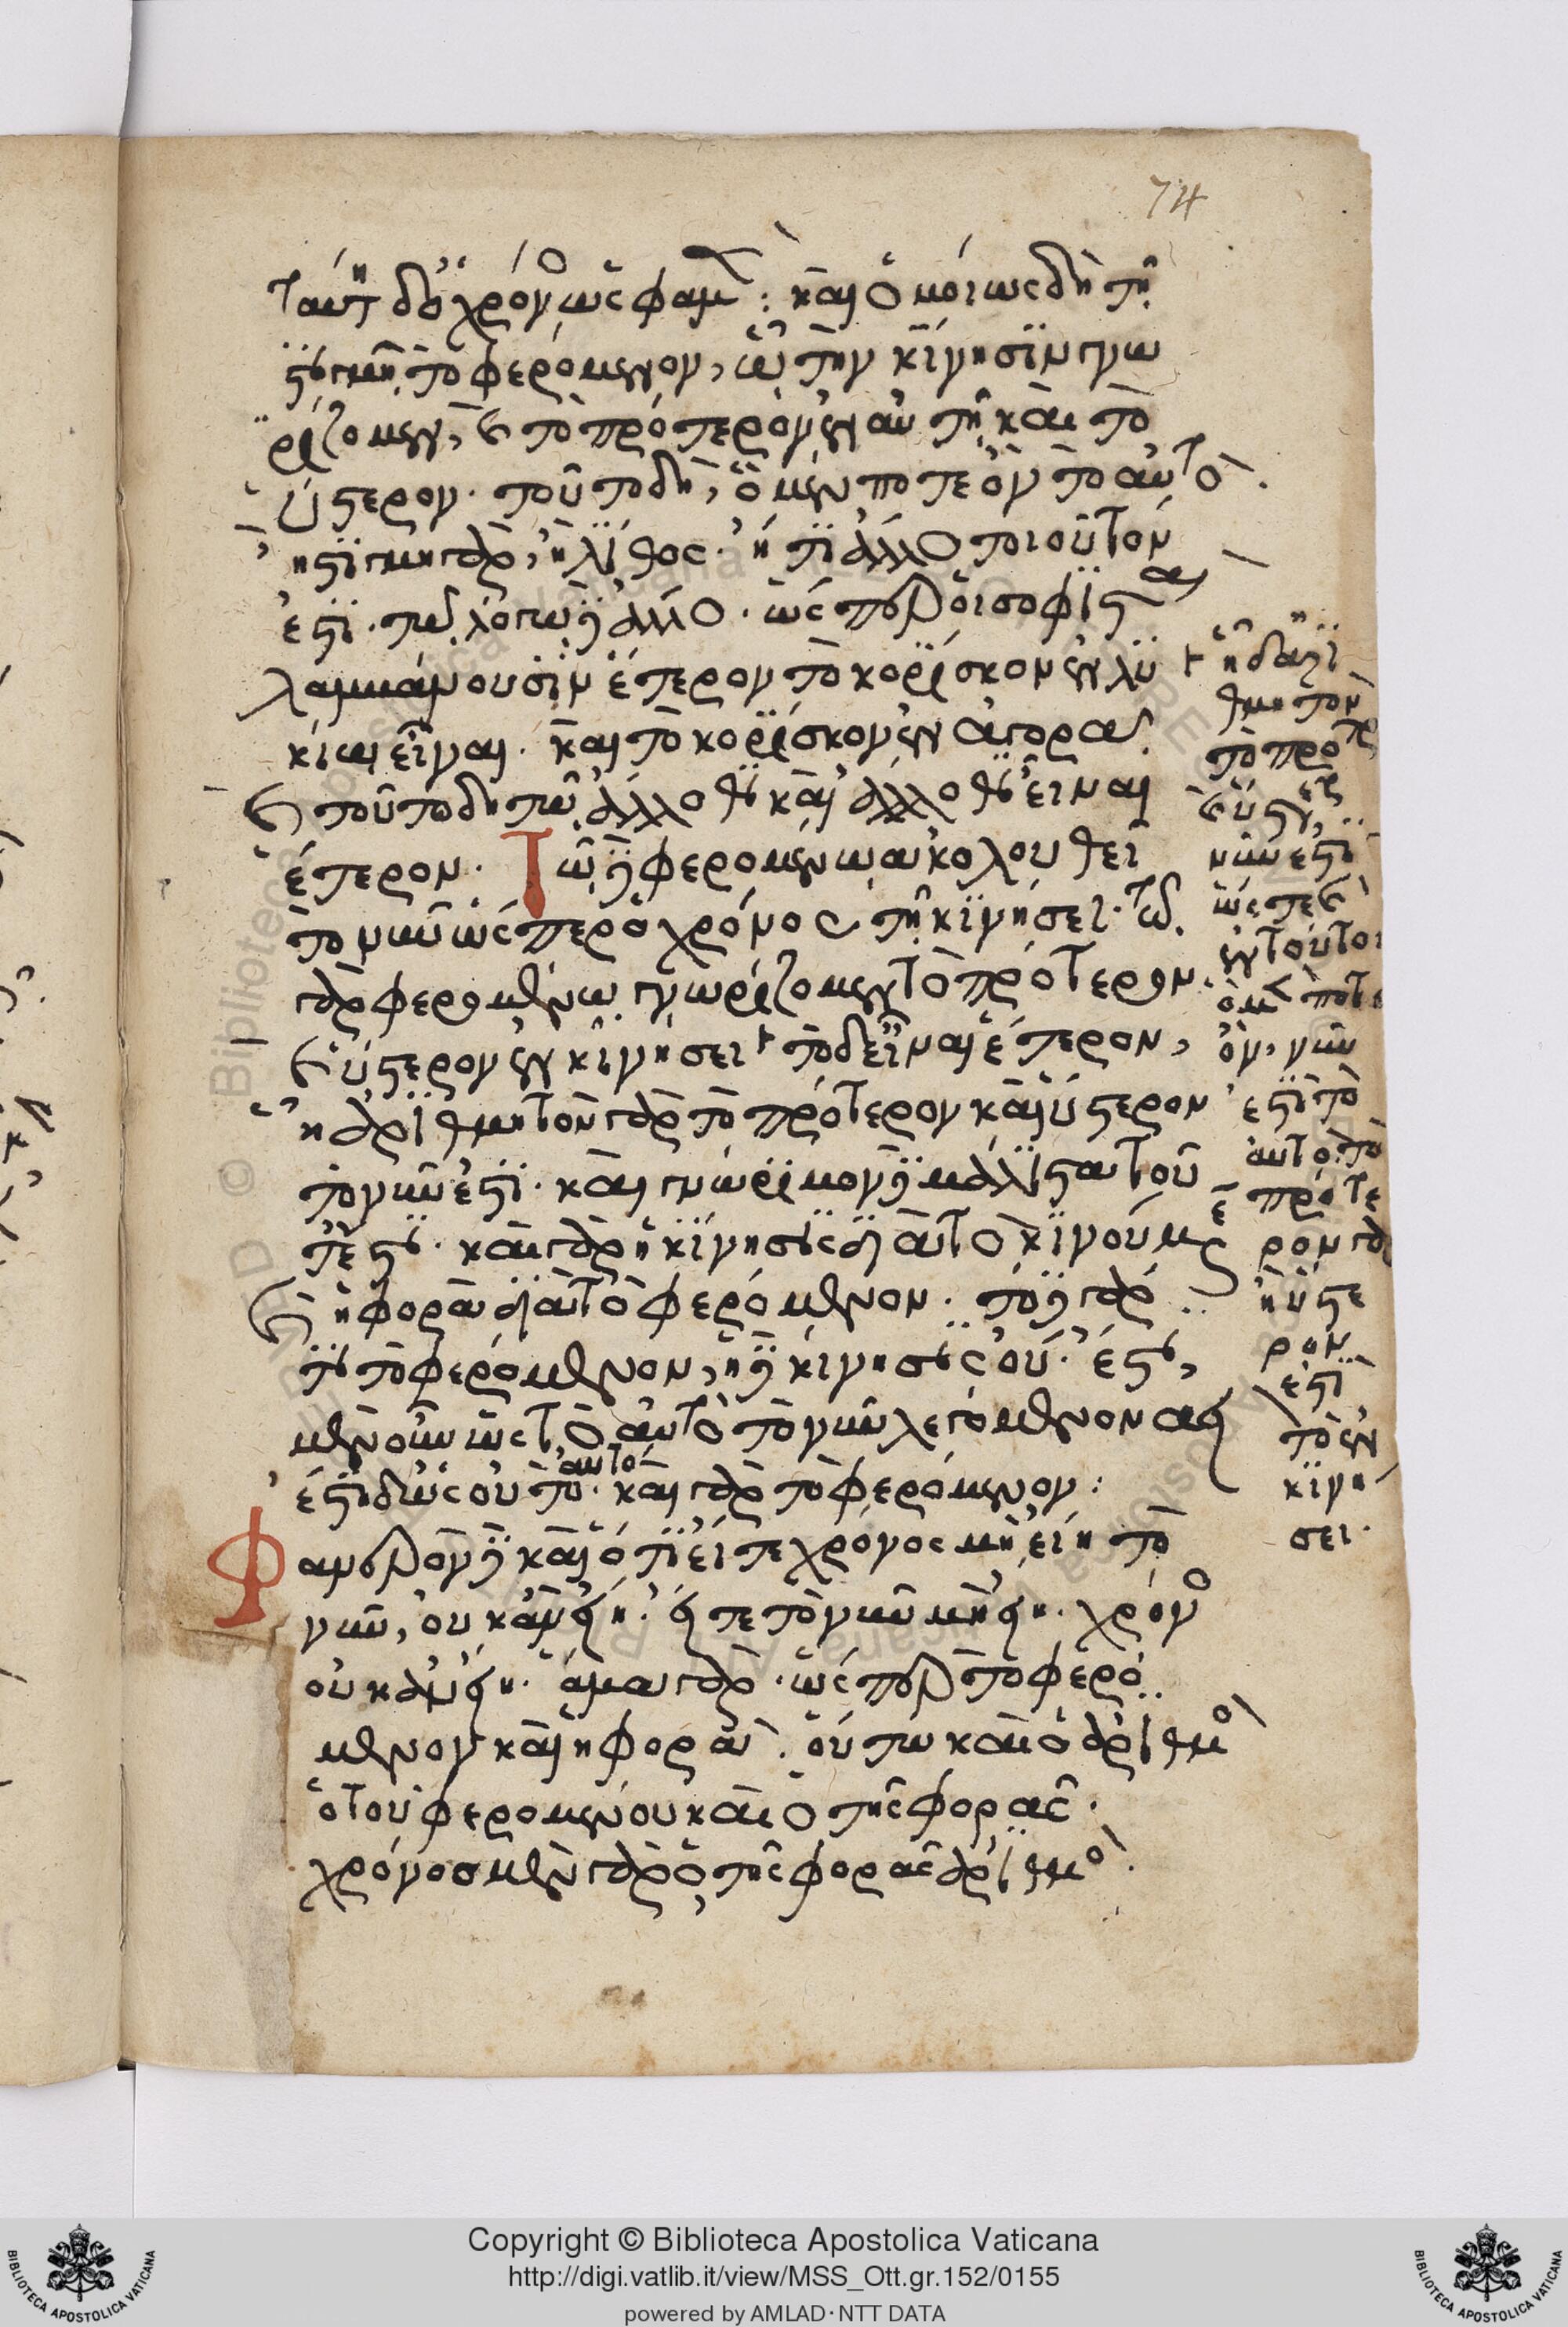 74
ταύτη δὲ ὁ χρόνος ὥς φαμεν : καὶ ὁμοίως δὴ τῇ
στιγμῇ τὸ φερόμενον, ᾧ τὴν κίνησιν γνω
ρίζομεν, καὶ τὸ πρότερον ἐν αὐτῇ καὶ τὸ
ὕστερον. τοῦτο δὴ, ὃ μέν ποτε ὂν τὸ αὐτὸ.
ἢ στιγμὴ γὰρ, ἢ λίθος. ἤ τι ἄλλο τοιοῦτόν
ἐστι. τῷ λόγῳ δὲ ἄλλο. ὥσπερ οἱ σοφισταὶ
λαμβάνουσιν ἕτερον τὸ κορίσκον ἐν λυ
κίῳ εἶναι. καὶ τὸ κορίσκον ἐν ἀγορᾶ.
καὶ τοῦτο δὴ τῷ ἄλλοθι καὶ ἄλλοθι εἶναι
ἕτερον. Τῷ δὲ φερομένῳ ἀκολουθεῖ
τὸ νῦν ὥσπερ ὁ χρόνος τῇ κινήσει. τῷ
γὰρ φερομένῳ γνωρίζομεν τὸ πρότερον
καὶ ὕστερον ἐν κινήσει τὸ δ εἶναι ἕτερον,
ᾗ ἀριθμητὸν γὰρ τὸ πρότερον καὶ ὕστερον
τὸ νῦν ἐστι. καὶ γνώριμον δὲ μάλιστα τοῦ
τό ἐστι. καὶ γὰρ ἡ κίνησις διὰ τὸ κινούμενον
καὶ ἡ φορὰ διὰ τὸ φερόμενον. τόδε γάρ
τι τὸ φερόμενον, ἡ δὲ κίνησις οὔ. ἔστι,
μὲν οὖν ὡς τὸ αὐτὸ τὸ νῦν λεγόμενον αεὶ
ἔστι δ ὡς οὐ τὸ αυτό. καὶ γὰρ τὸ φερόμενον :
Φανερὸν δὲ καὶ ὅτι εἴτε χρόνος μὴ εἴη τὸ
νῦν, οὐκ ἂν εἴη. εἴτε τὸ νῦν μὴ εἴη. χρόνος
οὐκ ἂν εἴη. ἅμα γὰρ. ὥσπερ τὸ φερό
μενον καὶ ἡ φορὰ. οὕτω καὶ ὁ ἀριθμὸς
ὁ τοῦ φερομένου καὶ ὁ τῆς φορᾶς.
χρόνος μὲν γὰρ ὁ τῆς φορᾶς ἀριθμὸς.
ᾗ δ ἀρι
θμητὸν
τὸ πρότερον
καὶ ὕστερον
νῦν ἐστι
ὥστε καὶ
ἐν τούτοις
ὃ μέν ποτε
ὂν, νῦν
ἐστι τὸ
αὐτό. τὸ
πρότε
ρον γὰρ
ἢ ὕστε
ρον
ἐστι
τὸ ἐν
κινή
σει.
Copyright © Biblioteca Apostolica Vaticana
http://digi.vatlib.it/view/MSS_Ott.gr.152/0155
powered by AMLAD · NTT DATA
BIBLIOTECA APOSTOLICA VATICANA
BIBLIOTECA APOSTOLICA VATICANA